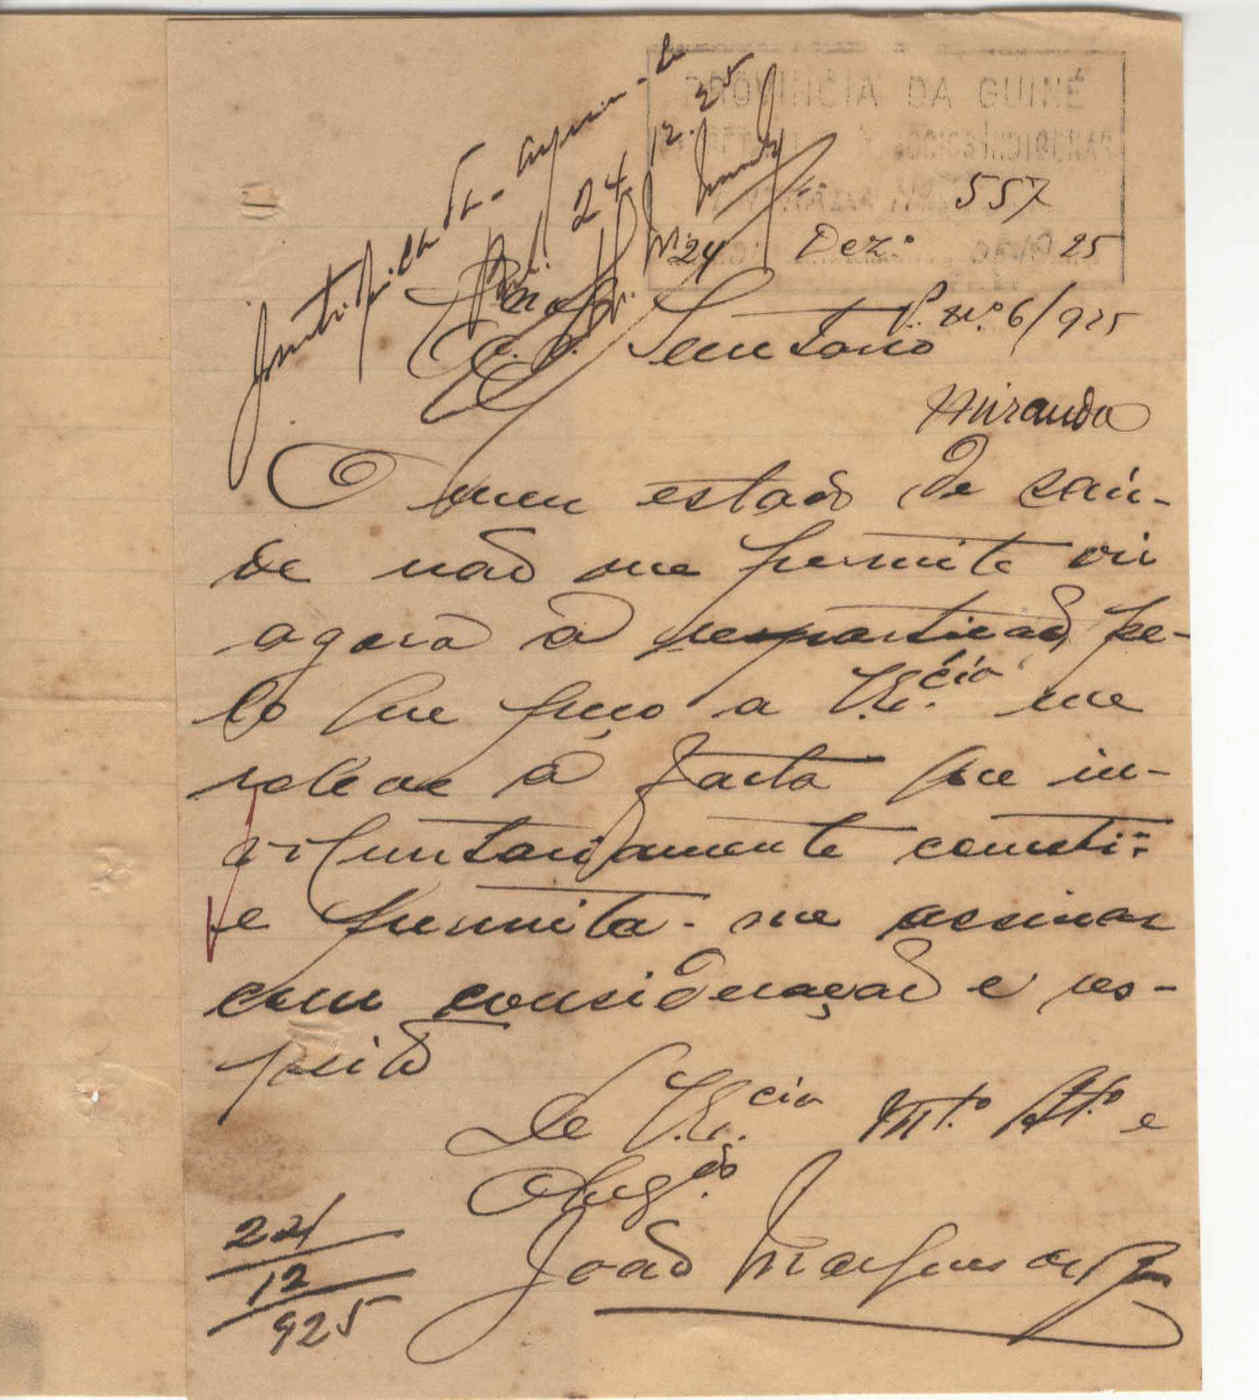 PROVINCIA DA GUINÉ
557
24 Dez.º 25
Justificada
24 12.25
P. N.º 6/925
Ex.mo Sr. Secretario
Miranda
O meu estado de saú-
de não me permite vir
agora á repartição, pe-
lo que peço a V.Ex.cia me
releve a falta que in-
voluntariamente cometi:
e permita-me assinar
com consideração e res-
peito
De V.Ex.cia Mt.º At.º e
Obrg.do
João Marques de
24/12/925